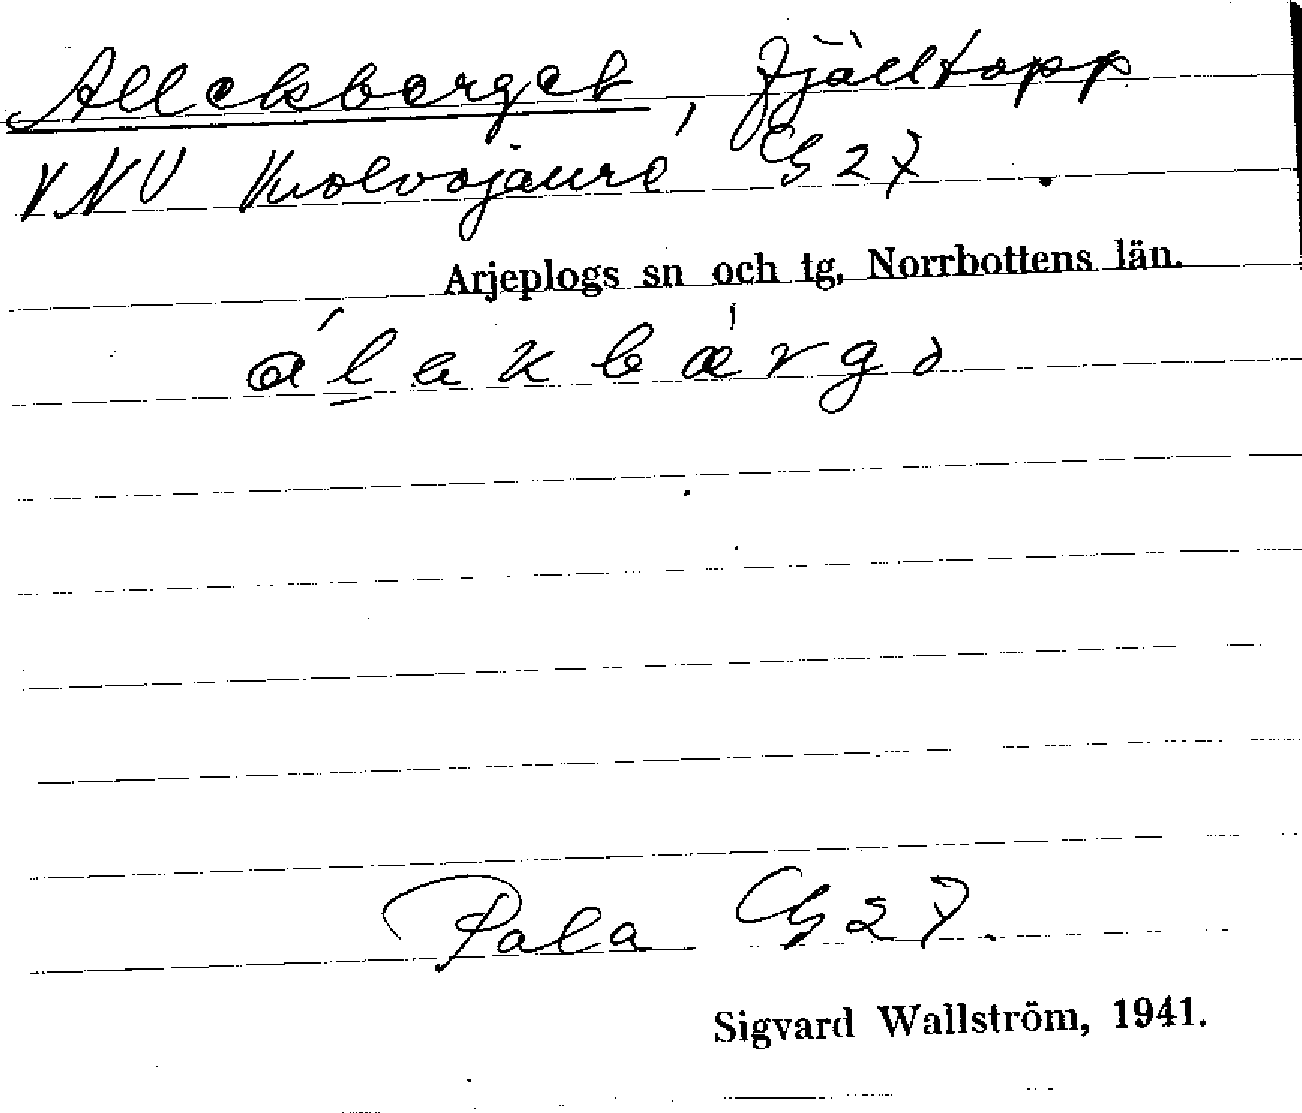 Alleckberget, fjälltopp
VNV Kuolvojaure G 27
Arjeplogs sn och tg, Norrbottens län.
álakbærgə
Pala G 27.
Sigvard Wallström, 1941.